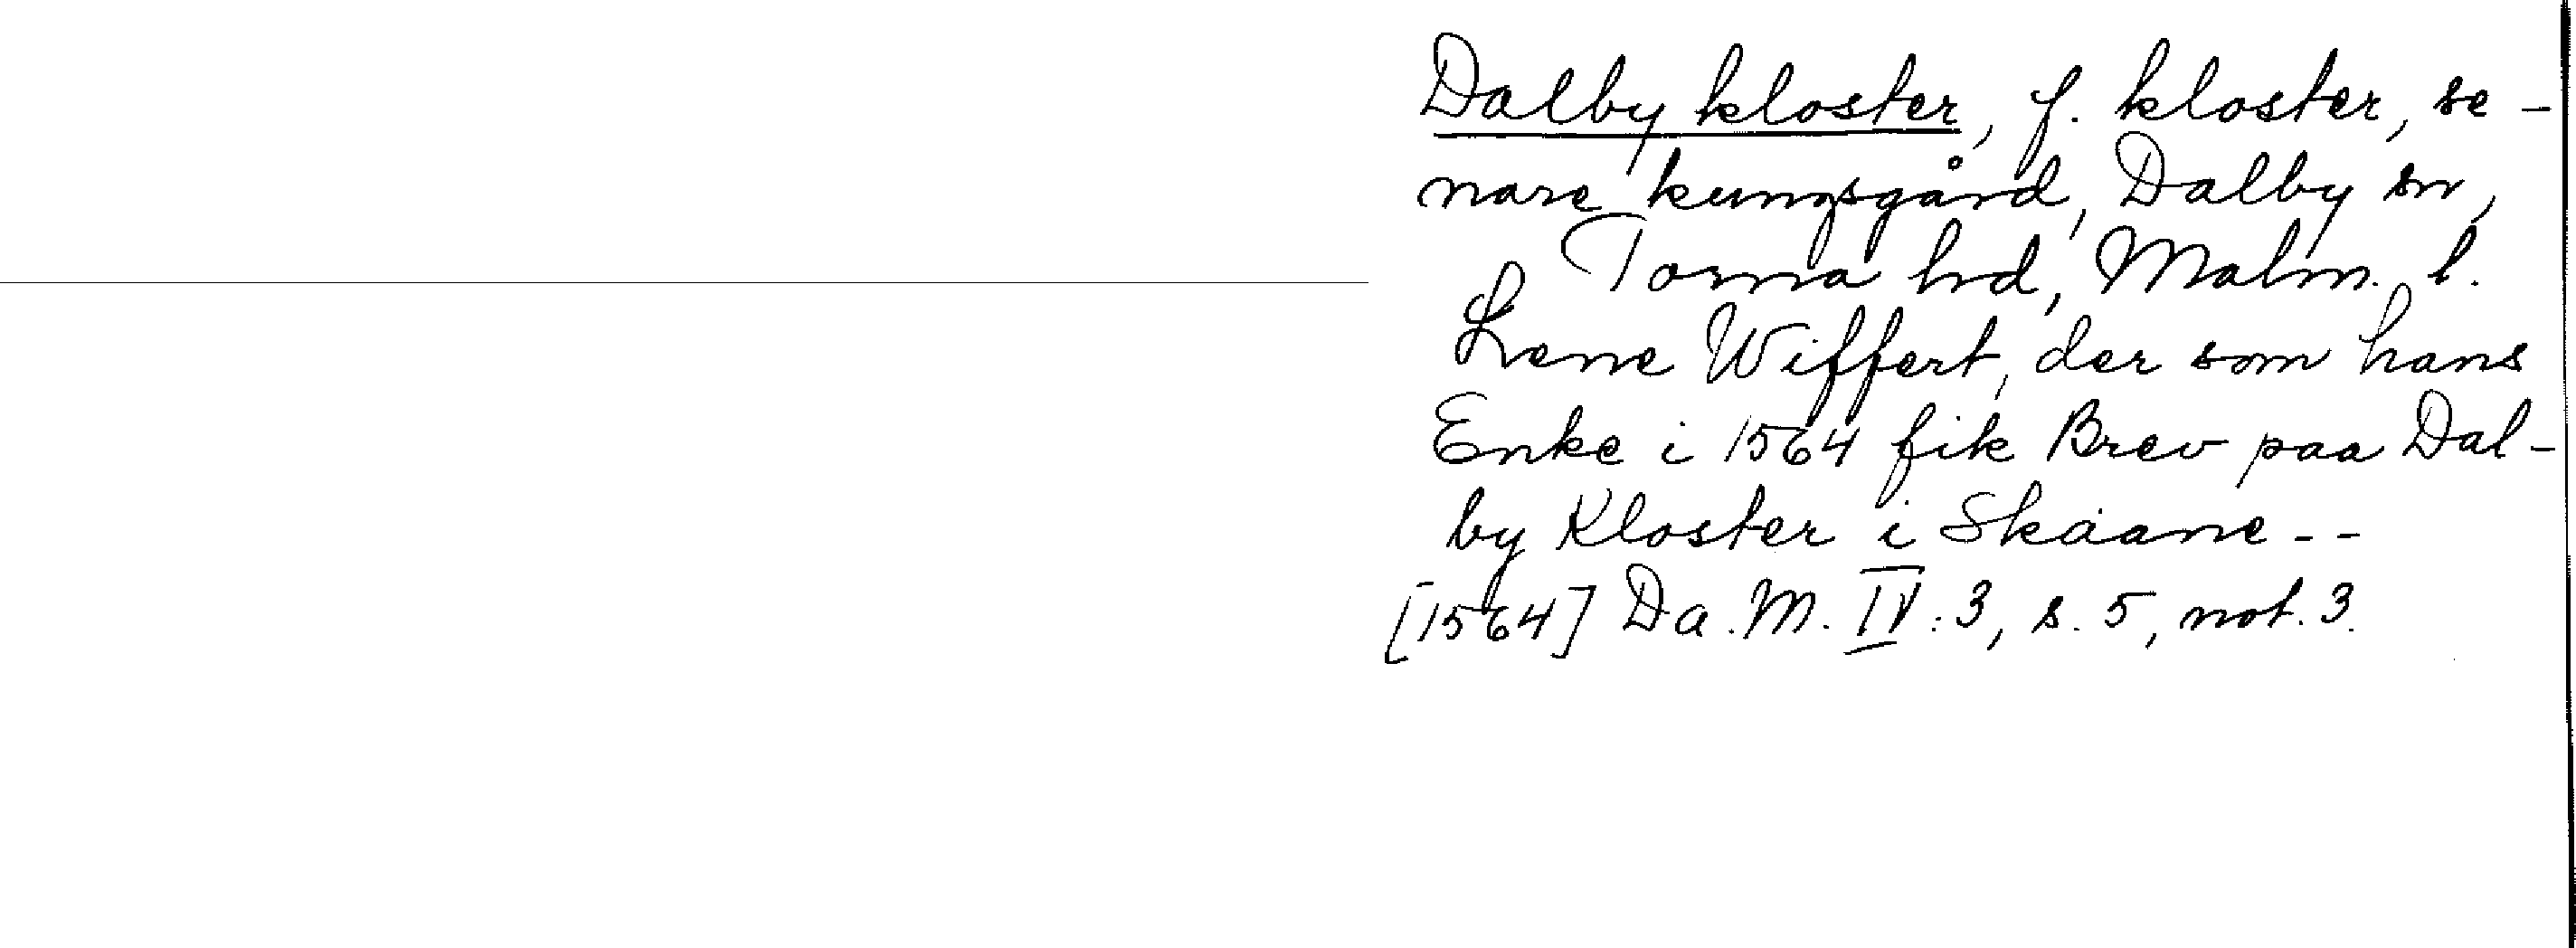 Dalby kloster, f. kloster, se-
nare kungsgård, Dalby sn,
Torna hd, Malm. l.
Lene Wiffert, der som hans
Enke i 1564 fik Brev paa Dal-
by Kloster i Skaane--
[1564] Da. M. IV:3, s. 5, not. 3.